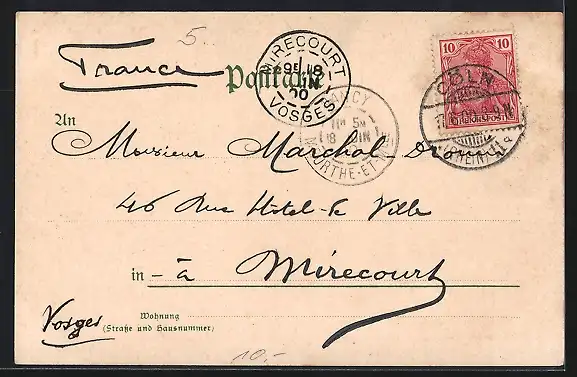 5..
France
Postkarte
MIRECOURT
9E 18
JUIN
00
VOSGES
NANCY
18 JUIN
MEURTHE-ET-MLLE
10 10
CÖLN
(RHEIN) 11 a
An
Monsieur Marchal
46 Rue Hôtel-de Ville
in – à Mirecourt
Vosges
Wohnung
(Straße und Hausnummer)
10,-